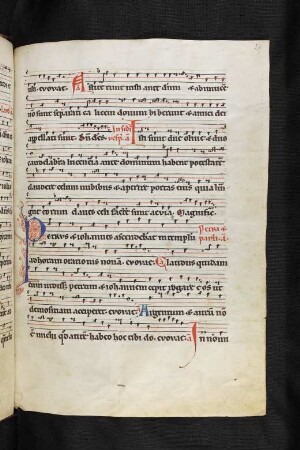 euouae. Asti terunt iusti ante dnm & ab inuicē
non sunt separati calicem domini biberunt & amici dei
appellati sunt. Isti sunt due oliue & duo
candelabra lucentia ante dominum habent potestatem
claudere celum nubibus & aperire portas eius quia lin
gue eorum claues celi facte sunt alleuia. Magnific.
Petrus & iohannes ascendebant in templū
ad horam orationis nonam. euouae. Claudus quidam
uidens petrum & iohannem cepit rogare eos ut
elemosinam acciperet. euouae. Argentum & aurū non
est michi quod autē habeo hoc tibi do. euouae. In nōm